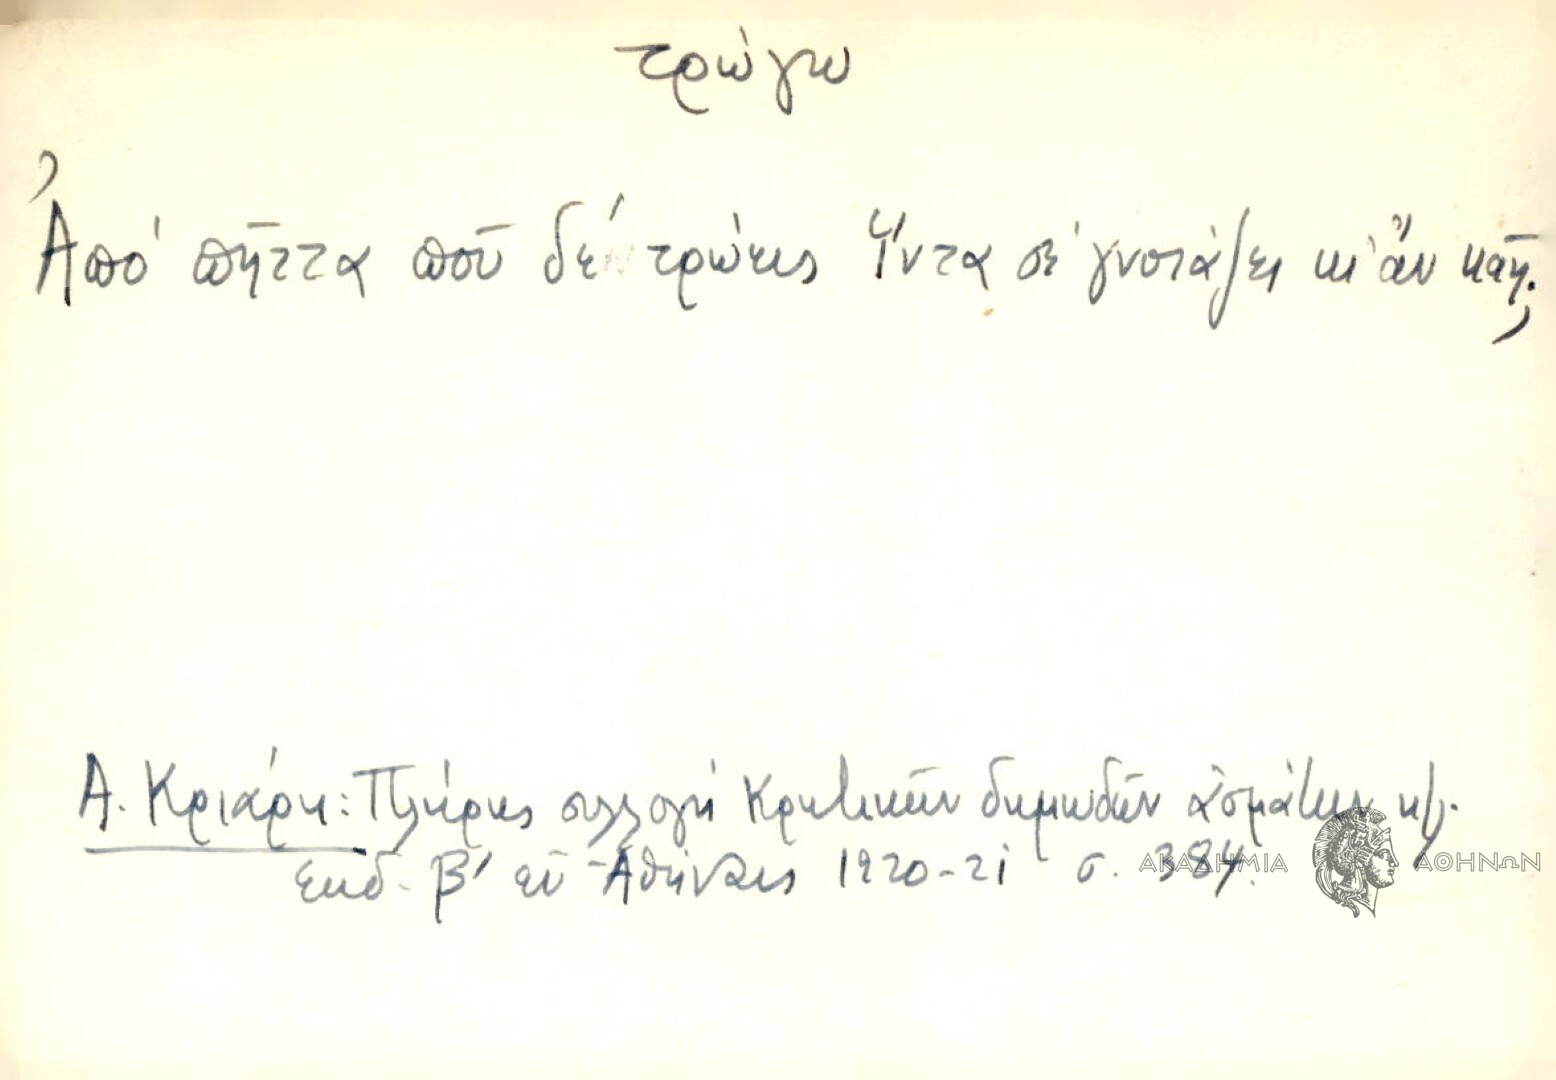 τρώγω
Ἀπό πῆττα ποῦ δέ τρώεις Ἴντα σέ γνοιάζει κι' ἄν καῆ;
Α. Κριάρη: Πλήρης συλλογή Κρητικῶν δημωδῶν ἀσμάτων κλ.
ἐκδ. β' ἐν Ἀθήναις 1920-21 σ. 384.
ΑΚΑΔΗΜΙΑ ΑΘΗΝΩΝ